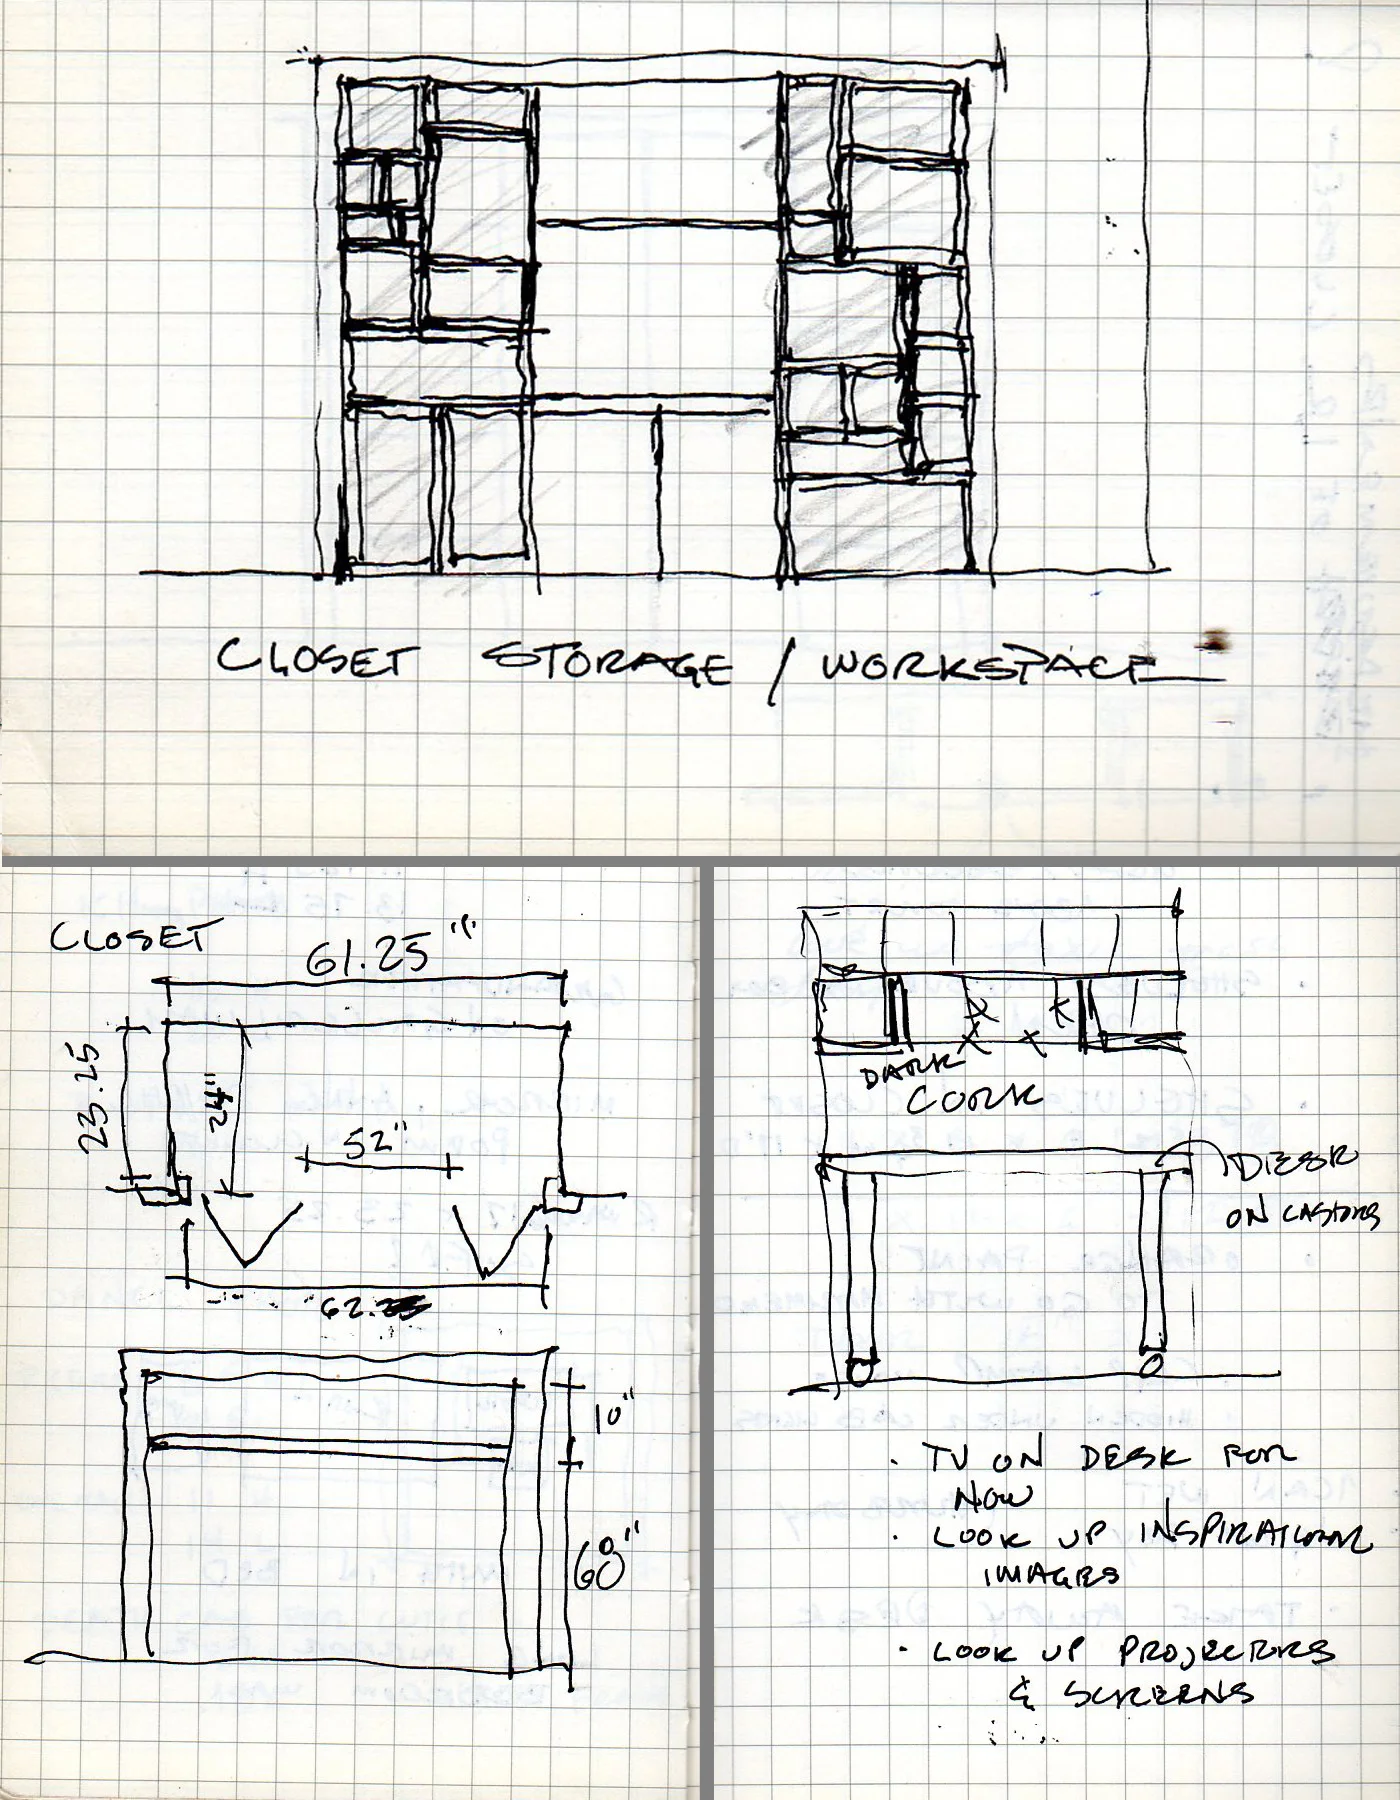 CLOSET STORAGE / WORKSPACE
CLOSET
61.25"
23.25
24"
52"
62.25
10"
60"
DARK
CORK
DESK
ON CASTORS
· TV ON DESK FOR
NOW
· LOOK UP INSPIRATIONAL
IMAGES
· LOOK UP PROJECTORS
& SCREENS